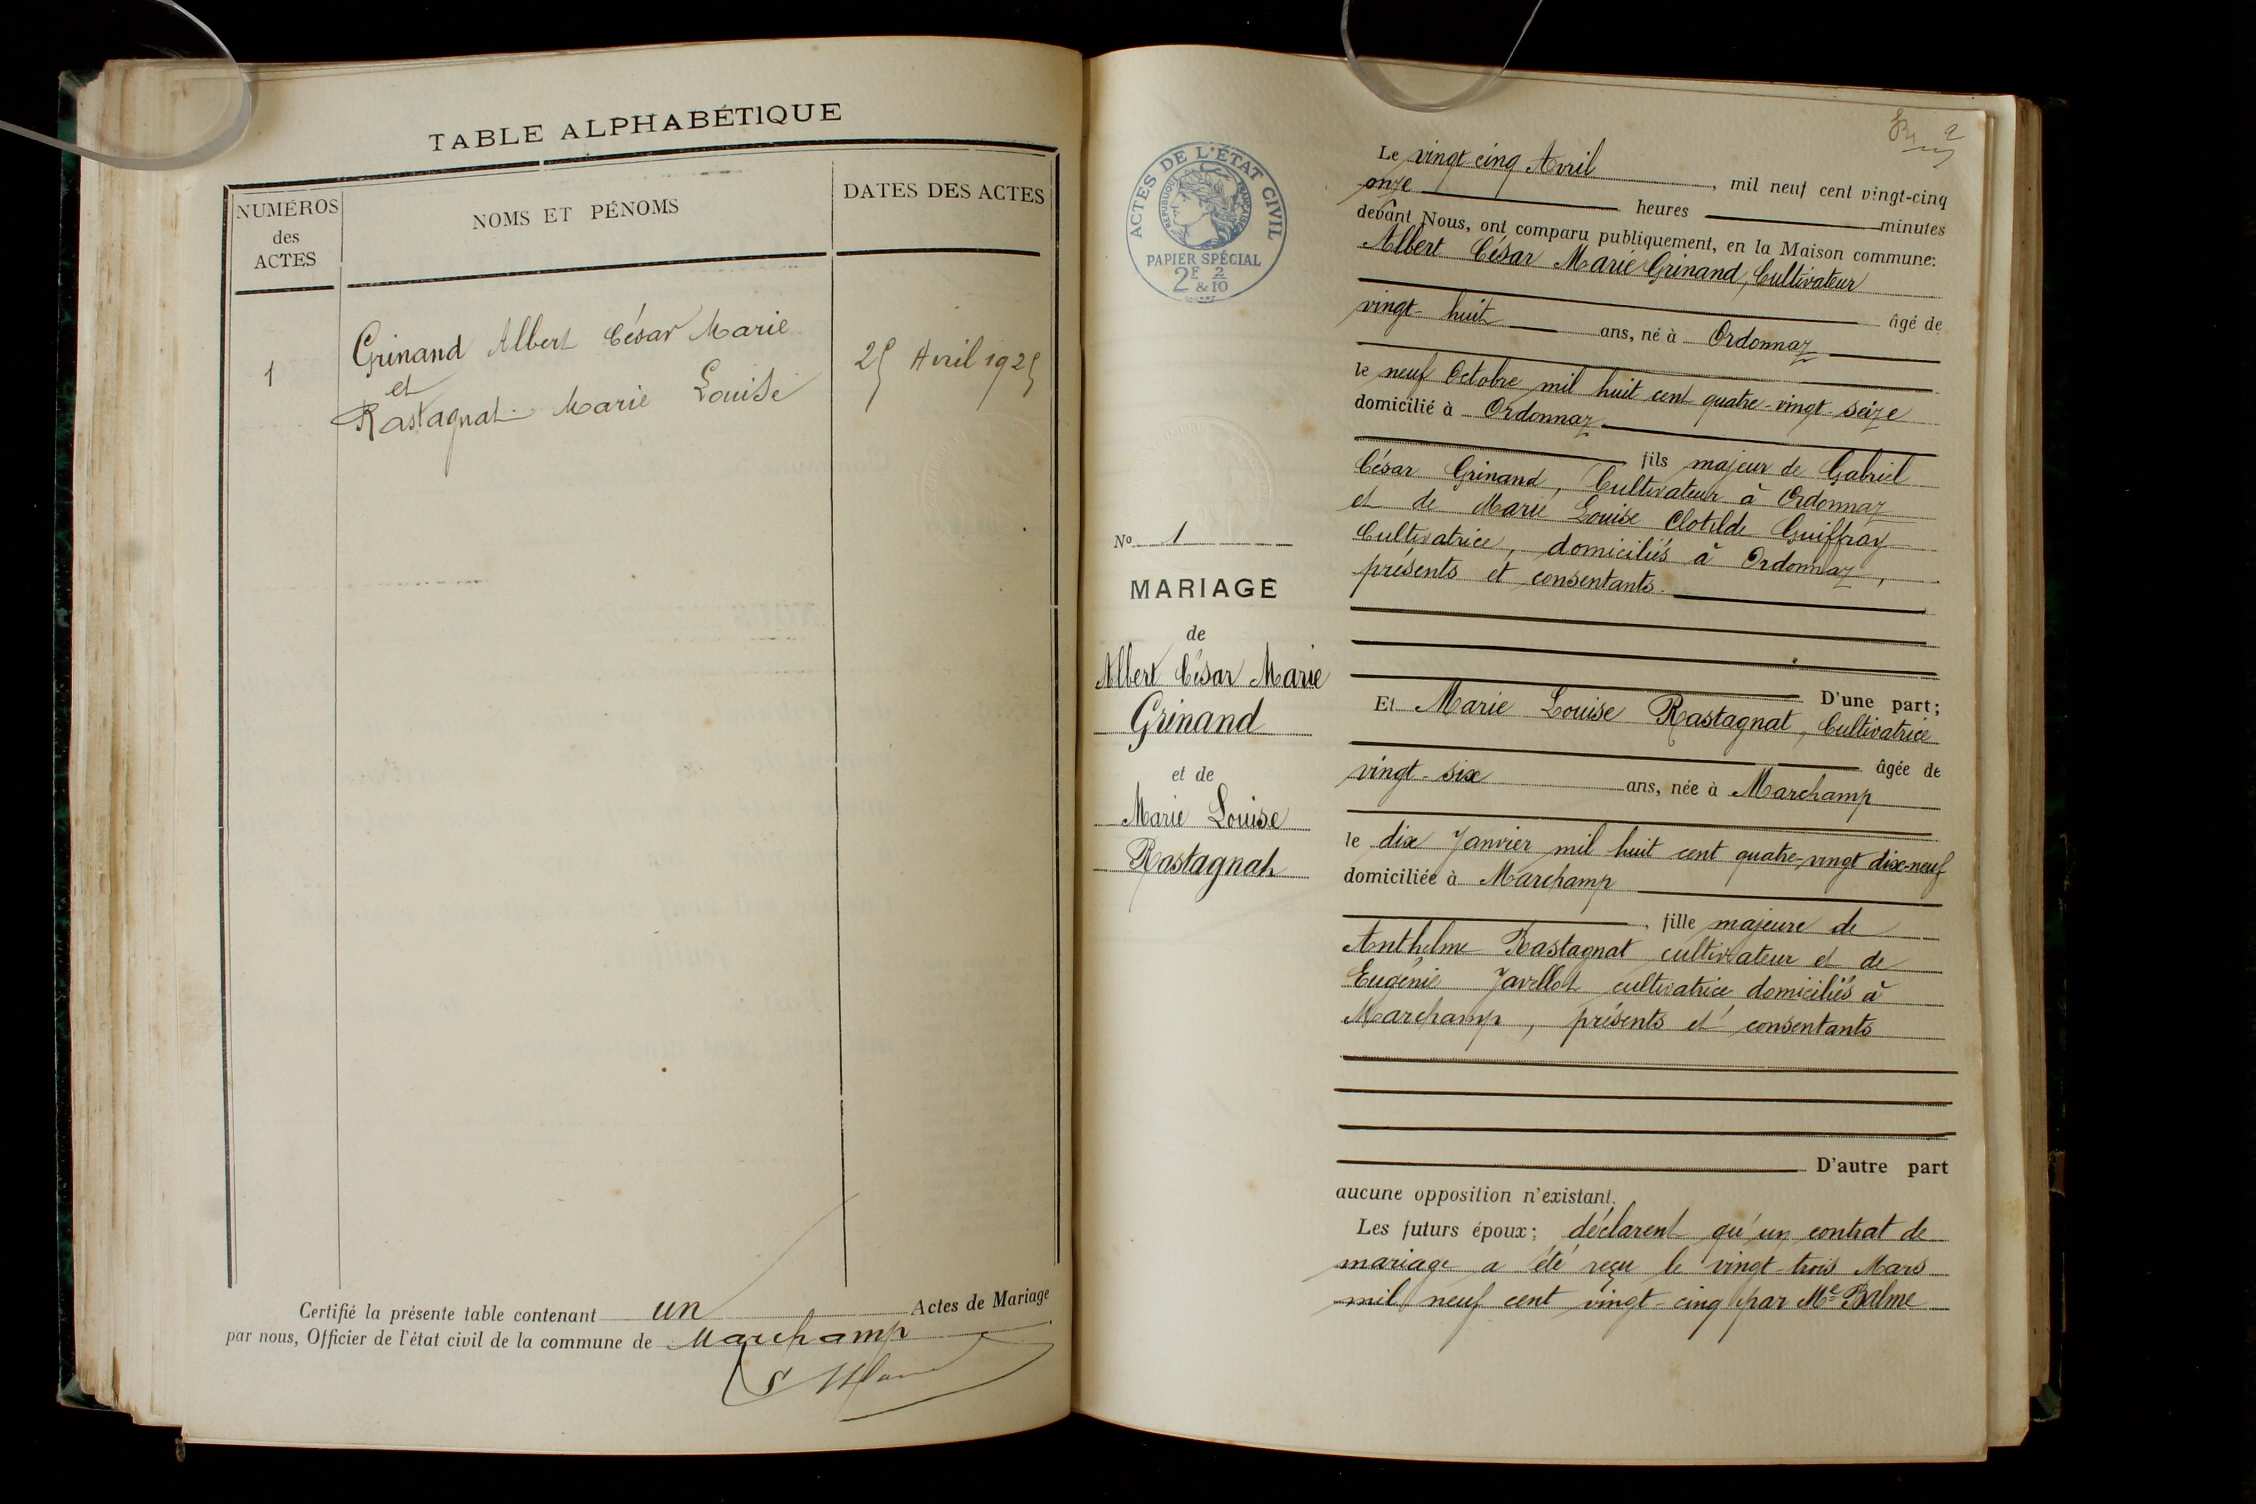 TABLE ALPHABÉTIQUE
NUMÉROS
des
ACTES
NOMS ET PÉNOMS
DATES DES ACTES
1
Grinand Albert César Marie
et
Rastagnat Marie Louise
25 Avril 1925
Certifié la présente table contenant un Actes de Mariage
par nous, Officier de l'état civil de la commune de Marchamp
2
ACTES DE L'ÉTAT CIVIL
RÉPUBLIQUE FRANÇAISE
PAPIER SPÉCIAL
2F & 2/10
No 1
MARIAGE
de
Albert César Marie
Grinand
et de
Marie Louise
Rastagnat
Le vingt cinq Avril, mil neuf cent vingt-cinq
onze heures minutes
devant Nous, ont comparu publiquement, en la Maison commune:
Albert César Marie Grinand, Cultivateur
âgé de
vingt-huit ans, né à Ordonnaz
le neuf Octobre mil huit cent quatre-vingt-seize
domicilié à Ordonnaz
fils majeur de Gabriel
César Grinand, Cultivateur à Ordonnaz
et de Marie Louise Clotilde Guiffray
Cultivatrice, domiciliés à Ordonnaz,
présents et consentants.
D'une part;
Et Marie Louise Rastagnat, Cultivatrice
âgée de
vingt-six ans, née à Marchamp
le dix Janvier mil huit cent quatre-vingt dix-neuf
domiciliée à Marchamp
, fille majeure de
Anthelme Rastagnat cultivateur et de
Eugénie Javellot cultivatrice domiciliés à
Marchamp, présents et consentants
D'autre part
aucune opposition n'existant.
Les futurs époux; déclarent qu'un contrat de
mariage a été reçu le vingt-trois Mars
mil neuf cent vingt-cinq par Me Balme